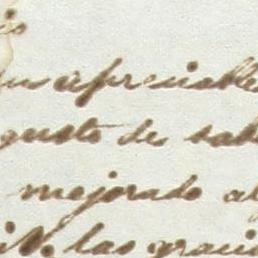 su apreciable
gusto de sabe
mejorado al
N. las gracia